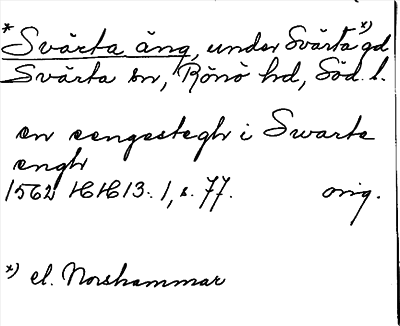 * Svärta äng, under Svärta *) gd
Svärta sn, Rönö hd, Söd. l.
en eengestegh i Swarta
engh
1562 HH 13: 1, s. 77. orig.
*) el. Norshammar